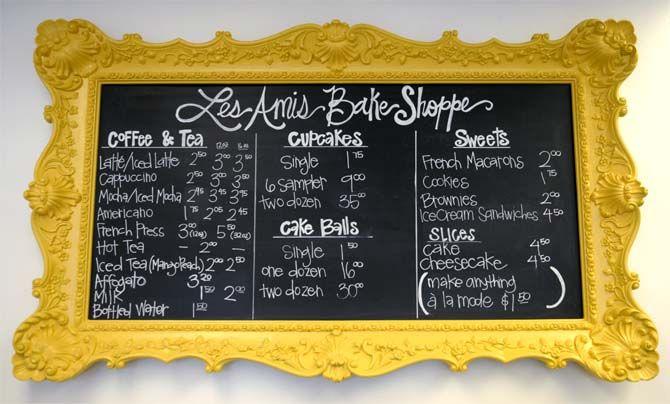 Les Amis Bake Shoppe
Coffee & Tea
12oz 16oz
Latté/Iced Latte 2⁵⁰ 3⁰⁰ 3⁵⁰
Cappuccino 2⁵⁰ 3⁰⁰ 3⁵⁰
Mocha/Iced Mocha 2⁹⁵ 3⁴⁵ 3⁹⁵
Americano 1⁷⁵ 2⁰⁵ 2⁴⁵
French Press 3⁰⁰(12oz) 5⁵⁰(32oz)
Hot Tea - 2⁰⁰ -
Iced Tea (Mango/Peach) 2⁰⁰ 2⁵⁰
Affogato 3²⁰
Milk 1⁵⁰ 2⁰⁰
Bottled Water 1⁵⁰
Cupcakes
Single 1⁷⁵
6 sampler 9⁰⁰
two dozen 35⁰⁰
Cake Balls
Single 1⁵⁰
one dozen 16⁰⁰
two dozen 30⁰⁰
Sweets
French Macarons 2⁰⁰
Cookies 1⁷⁵
Brownies 2⁰⁰
IceCream Sandwiches 4⁵⁰
Slices
Cake 4⁵⁰
Cheesecake 4⁵⁰
(make anything
à la mode $1⁵⁰)